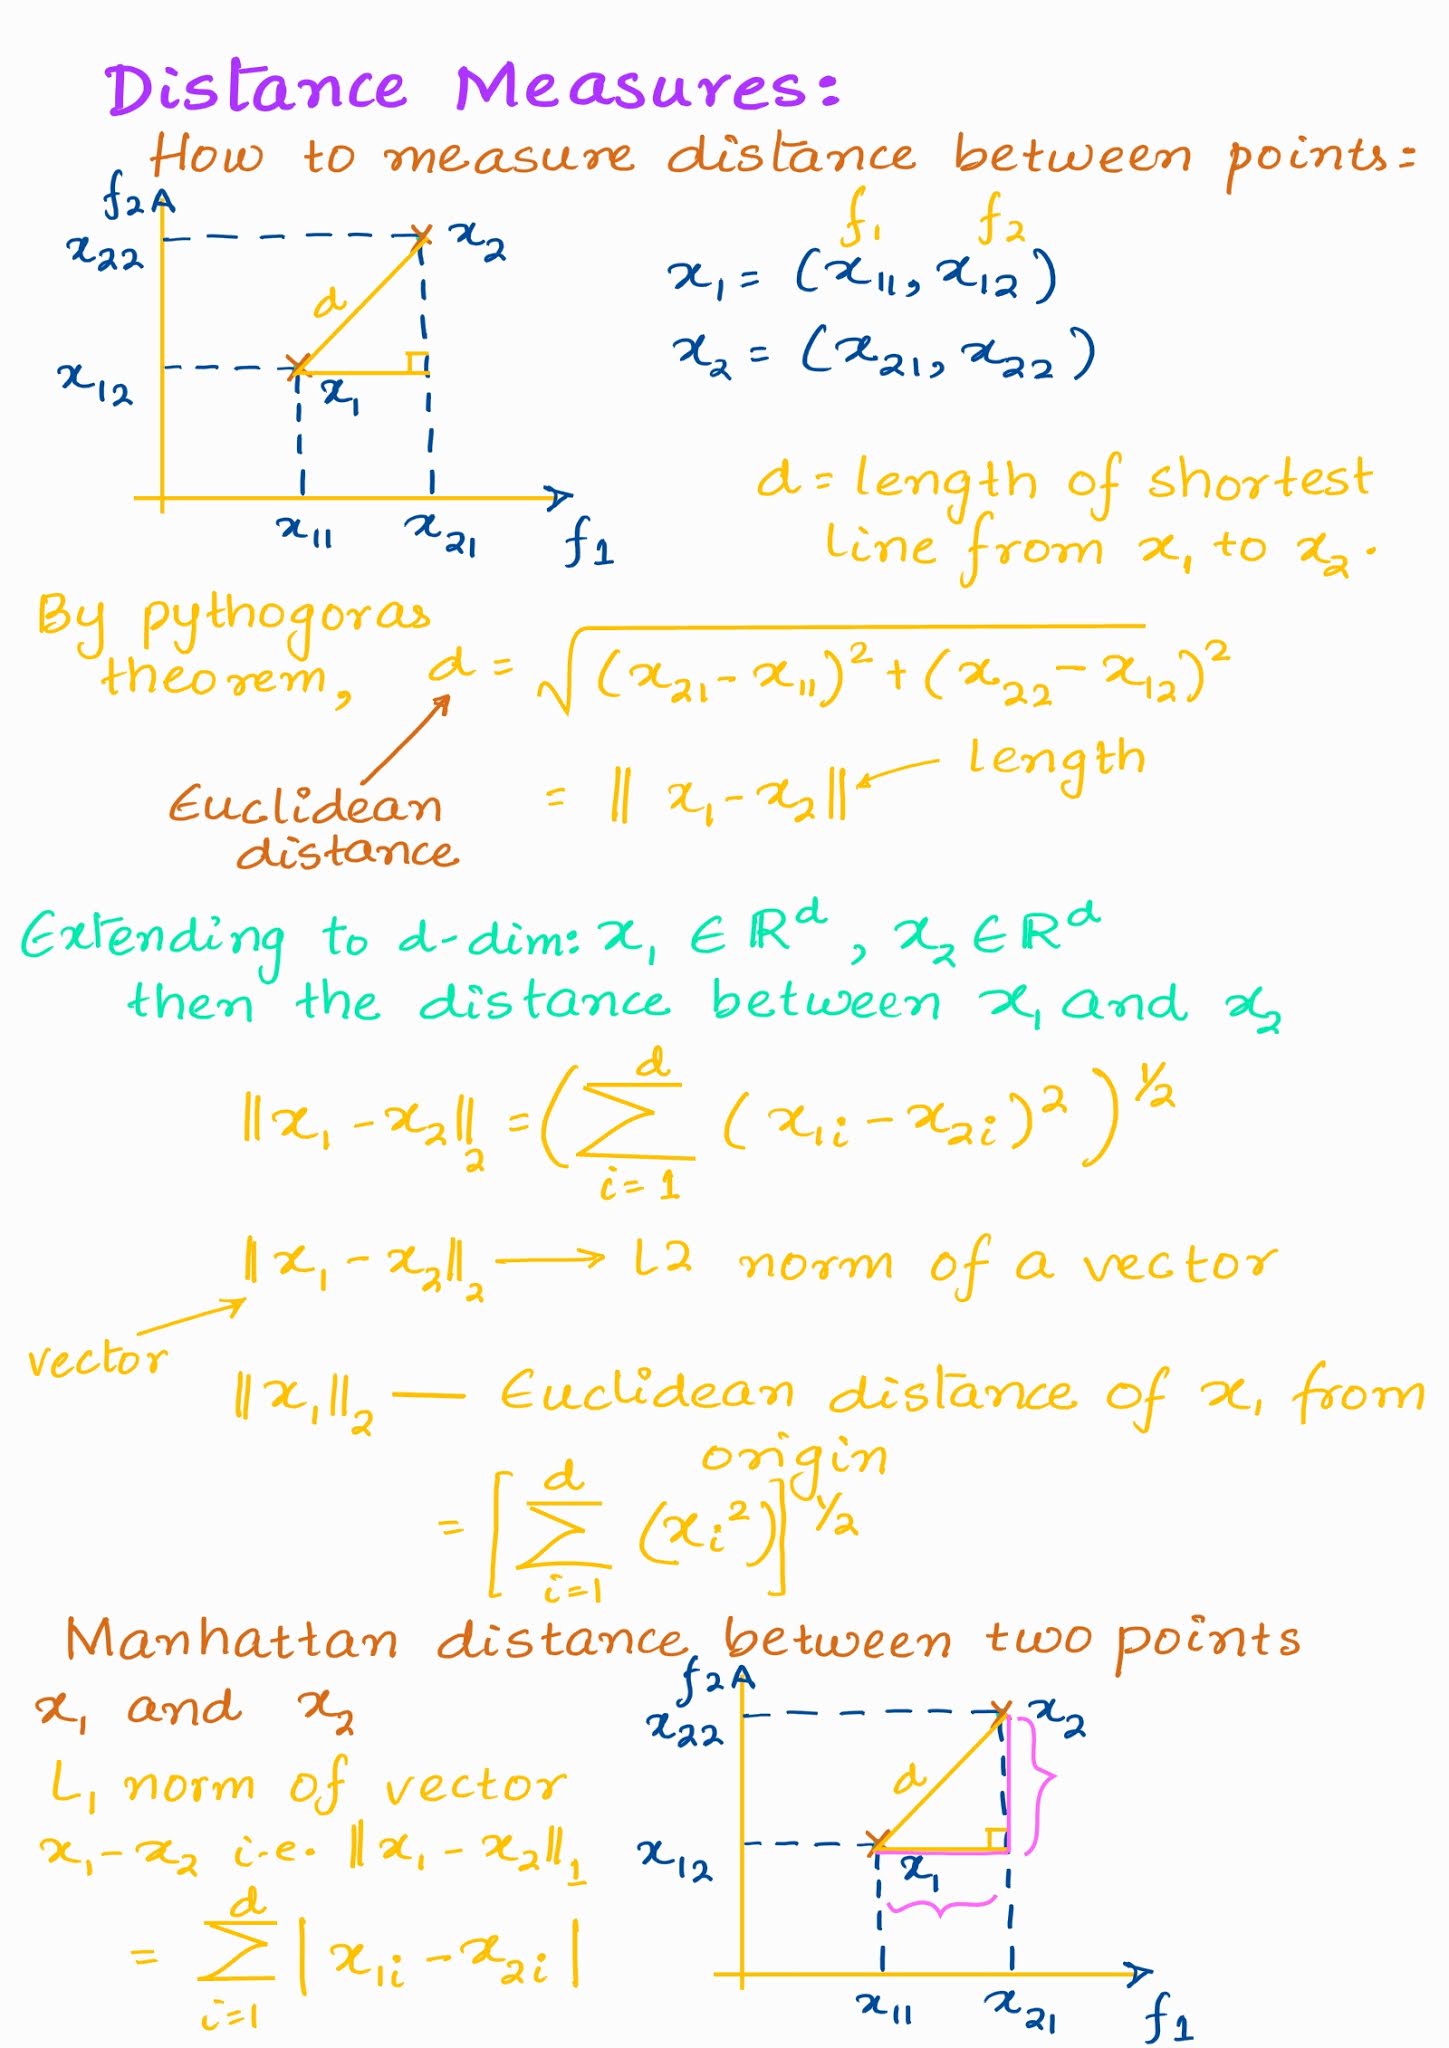 Distance Measures:
How to measure distance between points:
f2
x22
x2
d
x12
x1
x11 x21 f1
f1 f2
x1 = (x11, x12)
x2 = (x21, x22)
d = length of shortest
line from x1 to x2.
By pythogoras
theorem, d = √(x21 - x11)² + (x22 - x12)²
= || x1 - x2 || length
Euclidean
distance
Extending to d-dim: x1 ∈ ℝᵈ, x2 ∈ ℝᵈ
then the distance between x1 and x2
||x1 - x2||₂ = (∑ᵈᵢ₌₁ (x1i - x2i)²)^1/2
||x1 - x2||₂ → L2 norm of a vector
vector
||x1||₂ — Euclidean distance of x1 from
origin
= [∑ᵈᵢ₌₁ (xi²)]^1/2
Manhattan distance between two points
x1 and x2
L1 norm of vector
x1 - x2 i.e. ||x1 - x2||₁
= ∑ᵈᵢ₌₁ |x1i - x2i|
f2
x22
x2
d
x12
x1
x11 x21 f1